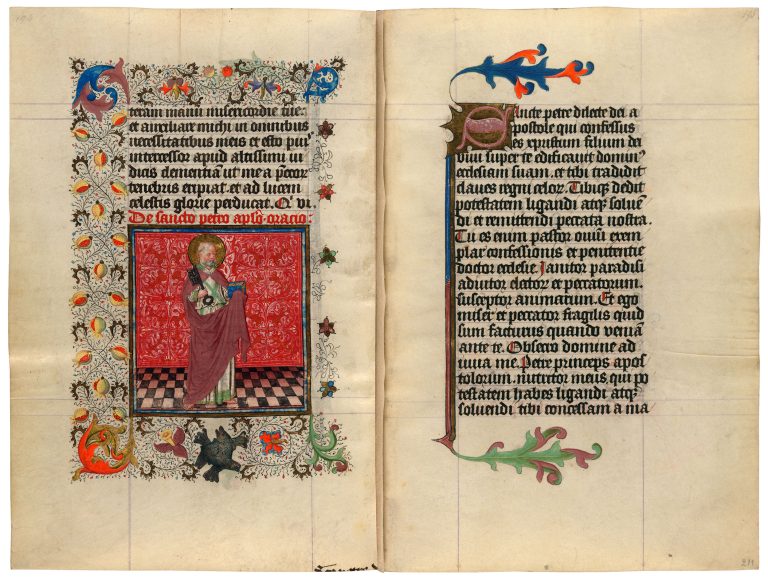 teram manū misericordie tue:
et auxiliare michi in omnibus
necessitatibus meis et esto piꝰ
intercessor apud altissimi iu
dicis clementiam ut me a pctor̄
tenebris eripiat. et ad lucem
celestis glorie perducat. Q̇ vi
De sancto petro aplō oracio:
Sancte petre dilecte dei a
postole qui confessus
es xpristum filium dei
viui super te edificauit dominꝰ
ecclesiam suam. et tibi tradidit
claues regni celoꝝ. Tibiqꝫ dedit
potestatem ligandi atqꝫ soluen
di et remittendi peccata nostra.
Tu es enim pastor ouiū exem
plar confessionis et penitentie
doctor ecclesie. Janitor paradisi
adiutor electoꝝ et peccatorum.
susceptor animarum. Et ego
miser et peccator fragilis quid
sum facturus quando veniā
ante te. Obsecro domine ad
iuua me. Petre princeps apos
tolorum. nutritor meus. qui po
testatem habes ligandi atqꝫ
soluendi tibi concessam a ma
211